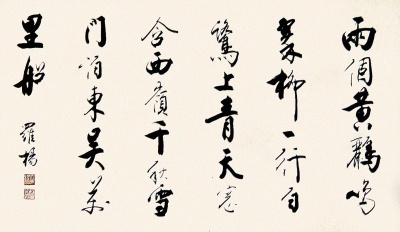 兩個黃鸝鳴
翠柳一行白
鷺上青天窗
含西嶺千秋雪
門泊東吴萬
里船
羅楊